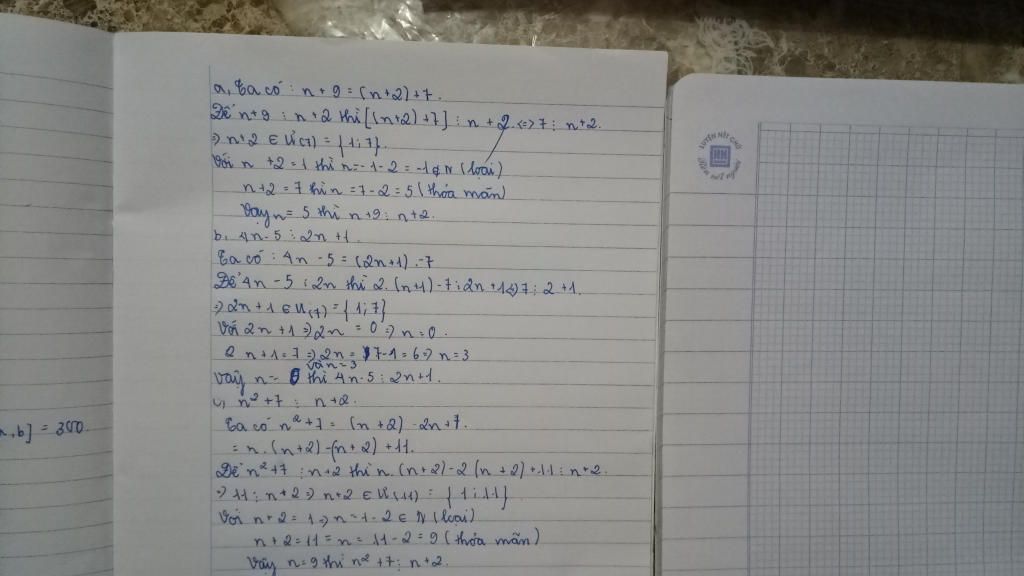 a, Ta có : n + 9 = (n+2)+7.
Để n+9 ⋮ n+2 thì [(n+2)+7] ⋮ n+2 <=> 7 ⋮ n+2.
=> n+2 ∈ Ư(7) = {1;7}.
Với n +2 = 1 thì n = 1-2 = -1 ∉ N (loại)
n+2 = 7 thì n = 7-2 = 5 (thỏa mãn)
Vậy n = 5 thì n+9 ⋮ n+2.
b, 4n-5 ⋮ 2n+1.
Ta có : 4n -5 = (2n+1) .-7
Để 4n -5 ⋮ 2n thì 2.(n+1)-7 ⋮ 2n+1 <=> 7 ⋮ 2+1.
=> 2n+1 ∈ Ư(7) = {1;7}
Với 2n+1 => 2n = 0 => n=0.
2n+1=7 => 2n = 7-1=6 => n=3
và n=3
Vậy n= 0 thì 4n-5 ⋮ 2n+1.
c, n²+7 ⋮ n+2.
Ta có n²+7 = (n+2) -2n+7.
= n.(n+2)-(n+2)+11.
Để n²+7 ⋮ n+2 thì n.(n+2)-2(n+2)+11 ⋮ n+2.
=> 11 ⋮ n+2 => n+2 ∈ Ư(11) = {1;11}
Với n+2 = 1 => n = 1-2 ∈ N (loại)
n+2 = 11 = n = 11-2 = 9 (thỏa mãn)
Vậy n=9 thì n²+7 ⋮ n+2.
,b] = 350.
LUYỆN NÉT CHỮ